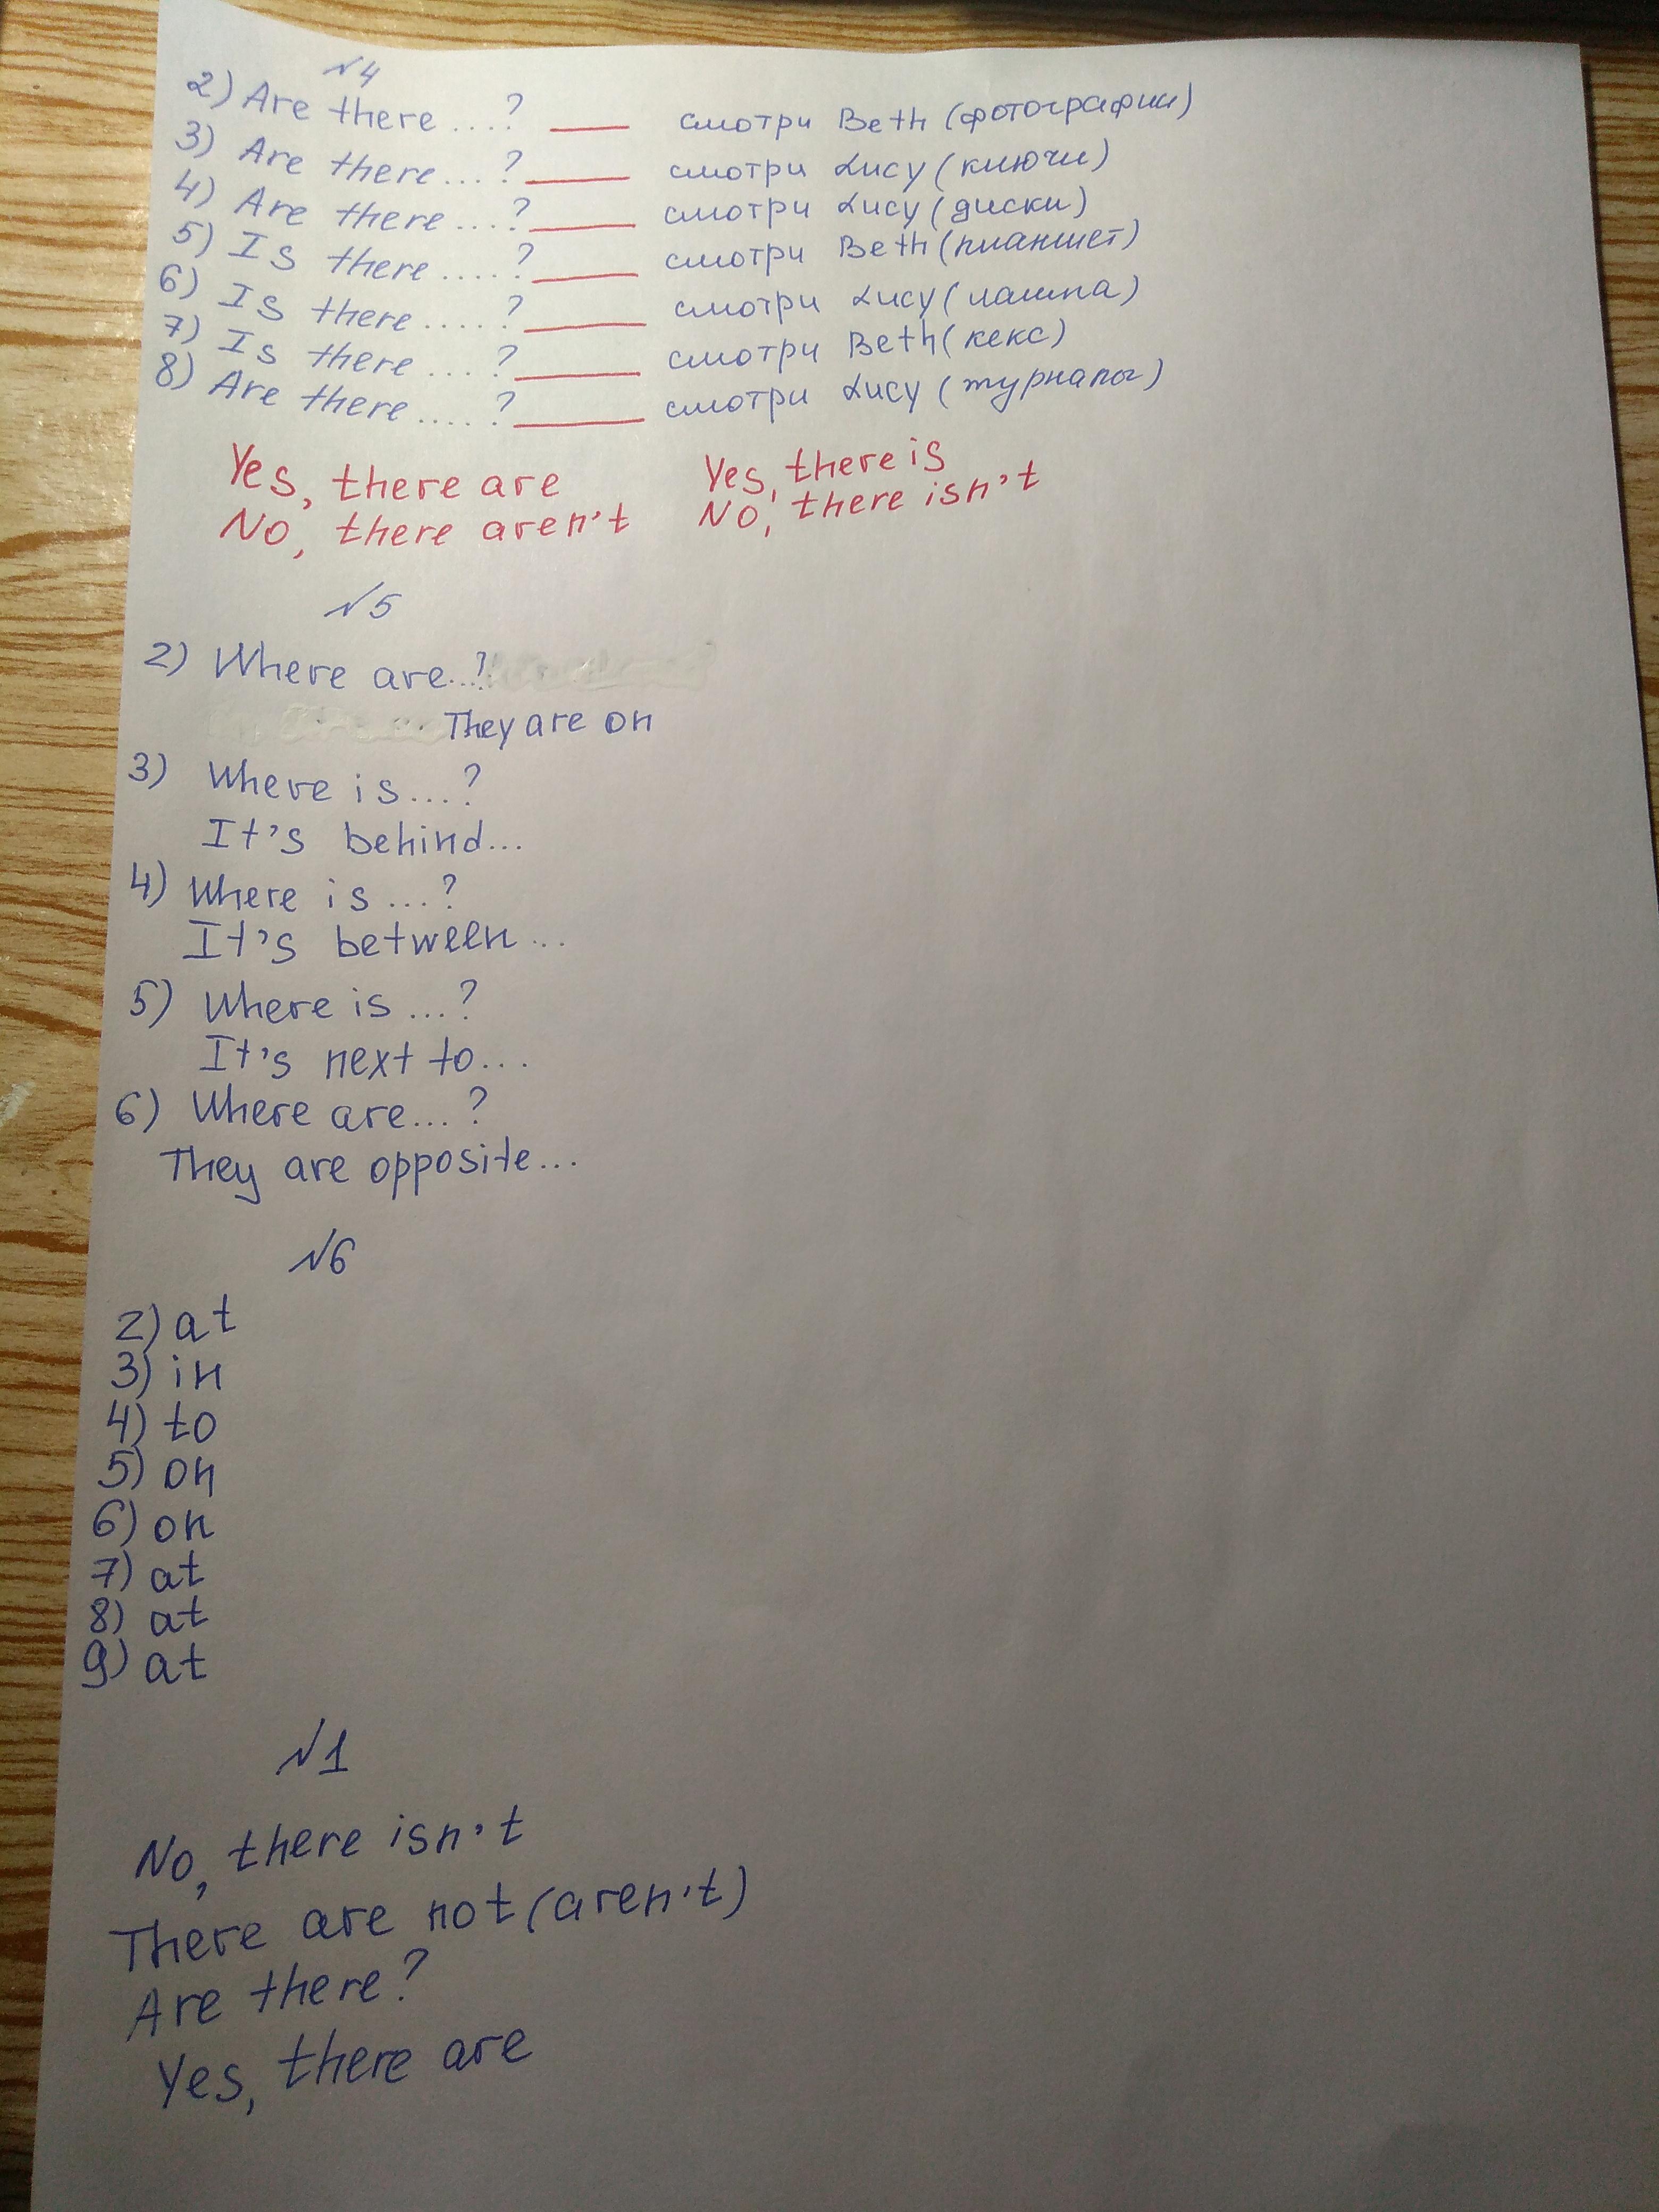 №4
2) Are there ....? ____ смотри Beth (фотографии)
3) Are there ....? ____ смотри Lucy (ключи)
4) Are there ....? ____ смотри Lucy (диски)
5) Is there ....? ____ смотри Beth (планшет)
6) Is there .....? ____ смотри Lucy (лампа)
7) Is there ....? ____ смотри Beth (кекс)
8) Are there .....? ____ смотри Lucy (журналы)
Yes, there are Yes, there is
No, there aren't No, there isn't
№5
2) Where are...?
... They are on
3) Where is....?
It's behind...
4) Where is ....?
It's between ...
5) Where is ....?
It's next to...
6) Where are....?
They are opposite...
№6
2) at
3) in
4) to
5) on
6) on
7) at
8) at
9) at
№1
No, there isn't
There are not (aren't)
Are there?
Yes, there are